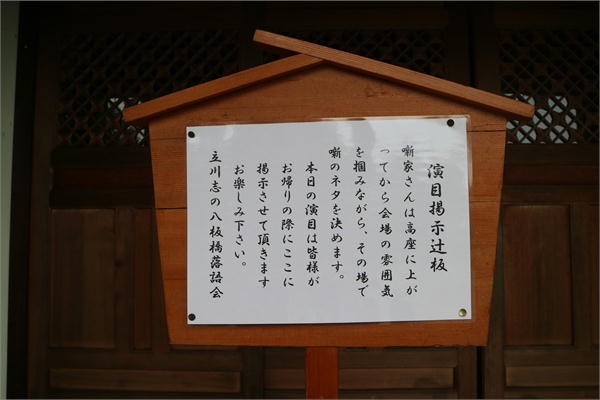 演目掲示辻板
噺家さんは高座に上が
ってから会場の雰囲気
を掴みながら、その場で
噺のネタを決めます。
本日の演目は皆様が
お帰りの際にここに
掲示させて頂きます
お楽しみ下さい。
立川志の八板橋落語会